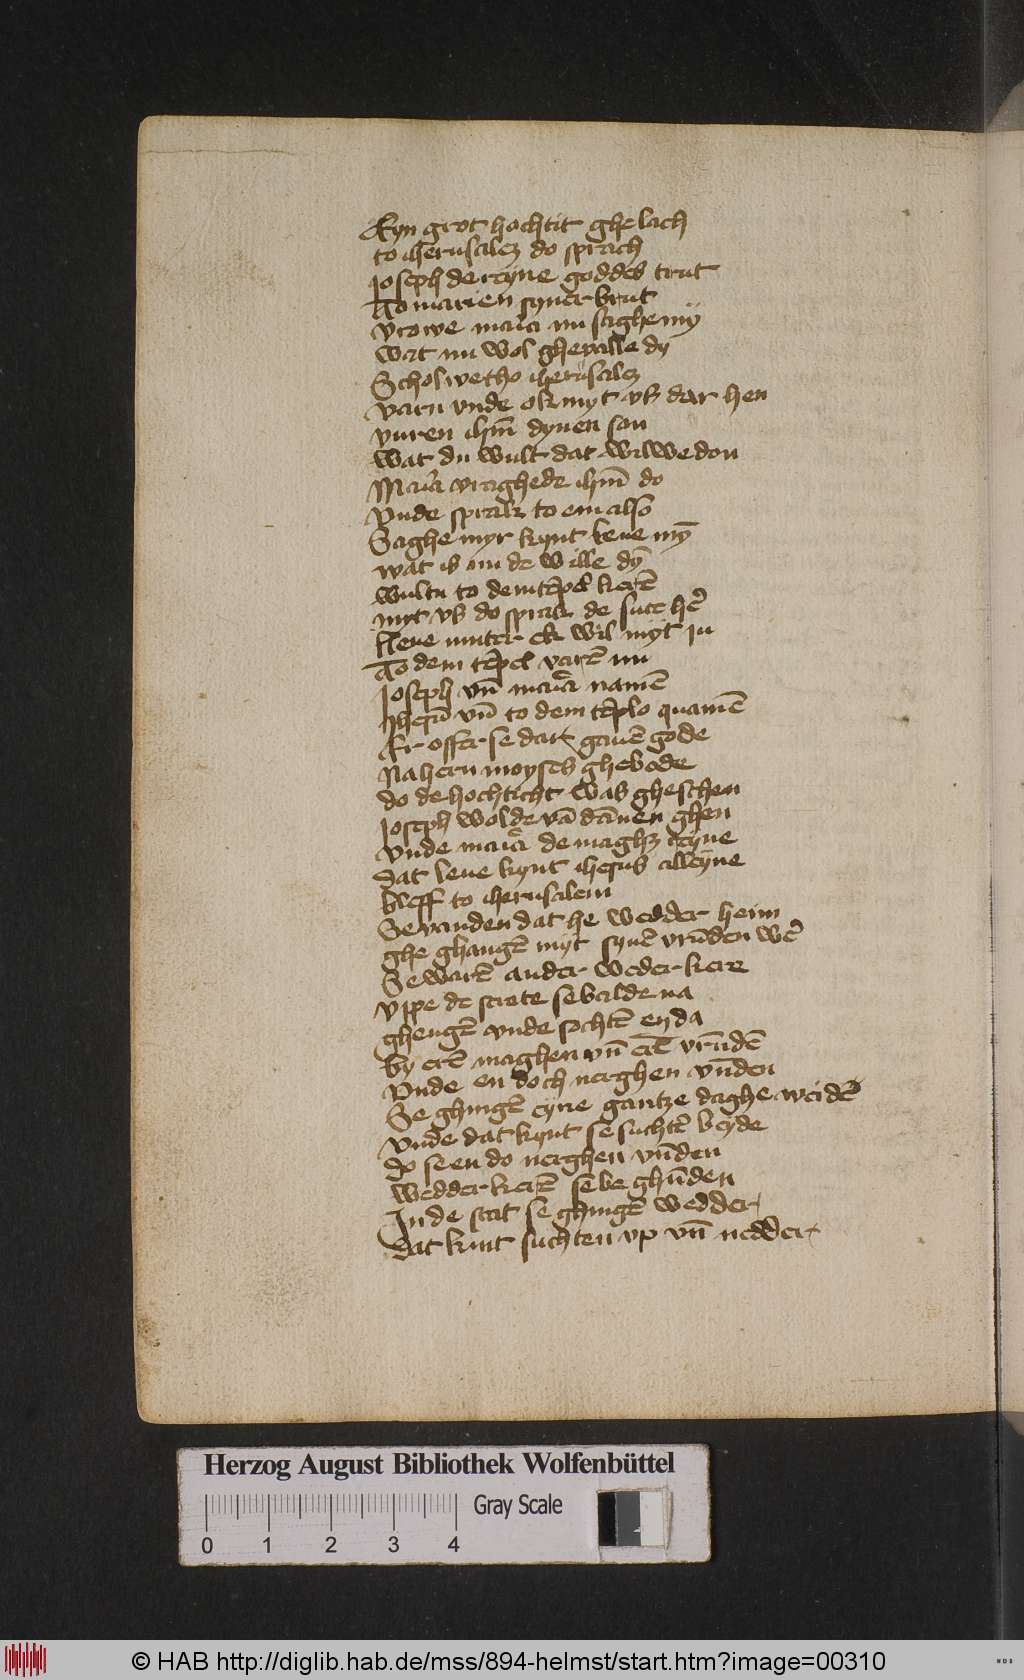 Eyn grot hochtit ghe lach
to iherusalez do sprach
Joseph de reyne goddes trut
To marien syner brut
vrowe maria nu saghe my
wat nu wol ghevalle dy
Schol we tho iherusalez
varn vnde ok myt vs dar hen
vuren ihm̄ dynen son
wat du wult dat wil we don
Maria vraghede ihm̄ do
Vnde sprak to em also
Saghe myr kynt leue mȳ
wat is nu de wille dȳ
wultu to dem tēpel kerē
myt vs do sprak de sute hē
Leue muter ek wil myt ju
To dem tēpel varē nu
Joseph vn̄ maria namē
Jhesū vn̄ to dem tēplo quamē
Er offer se dar gauē gode
Na hern moyses ghebode
do de hochticht was gheschen
Joseph wolde vā dānen ghen
vnde maria de maghz reyne
dat leue kynt ihesus alleyne
bleff to iherusalem
Se vanden dat he wedder heim
ghe ghangē myt synē vrūden wē
Se warē ander weder kere
vppe de strete se balde na
ghengē vnde sochtē en da
by erē maghen vn̄ erē vrūdē
Vnde en doch nerghen vūden
Se ghingē eyne gantze daghe weidē
vnde dat kynt se suchtē beyde
do se en do nerghen vūden
wedder kerē se be ghūden
In de stat se ghingē wedder
dat kint suchten vp vn̄ nedder
Herzog August Bibliothek Wolfenbüttel
0 1 2 3 4 Gray Scale
© HAB http://diglib.hab.de/mss/894-helmst/start.htm?image=00310